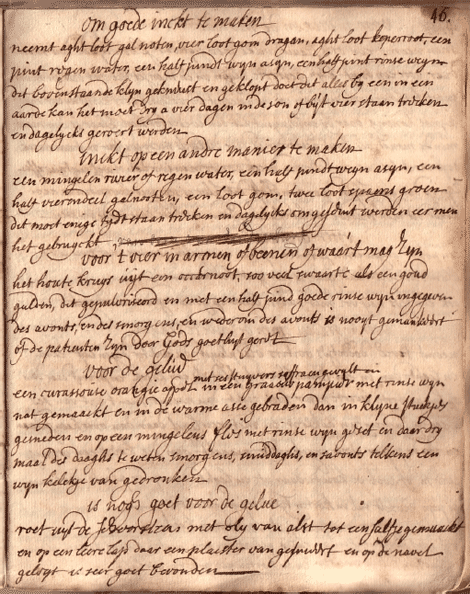 46.
om goede inckt te maken
neemt aght loot galnoten, vier loot gom dragan, aght loot koperroot, een
pint regen water, een half pindt wyn asyn, een half pint rinse weyn
dit bovenstaande klyn geknuust en geklopt doet dit alles by een in een
aarde kan het moet 3 a vier dagen in de son of byt vier staan trecken
en dagelycks geroert werden
Inckt op een andre manier te maken
een mingelen rivier of regen water, een half pindt weyn asyn, een
half vierendeel galnooten, een loot gom, twee loot spaens groen
dit moet enige tydt staan trecken en dagelycks omgeroert werden eer men
het gebruyckt
voor 't vier in armen of beenen of waar 't mag zyn
het houte kruys uyt een ockernoot, soo veel swaarte als een goud
gulden, dit gepulvriseerd en met een half pind goede rinse wyn ingegeven
des avonts, en des smorgens, en wederom des avonts is nooyt gemankeert
of de patienten zyn door Gods goetheyt gered
voor de gelu
een curassouse oranje appel met ses stuyvers saffraen gevult en in een graauw pampier met rinse wyn
nat gemaackt en in de warme asse gebraden dan in klyne stuckjes
gesneden en op een mingelens fles met rinse wyn geset en daar dry
maal des daaghs te weten smorgens, smiddaghs, en savonts telkens een
wyn kelckje van gedroncken
is noch goet voor de gelue
roet uyt de schoorsteen met oly van alst tot een salfje gemaackt
en op een leere lap daar een plaester van gesmeert en op de navel
geleyt is seer goet bevonden